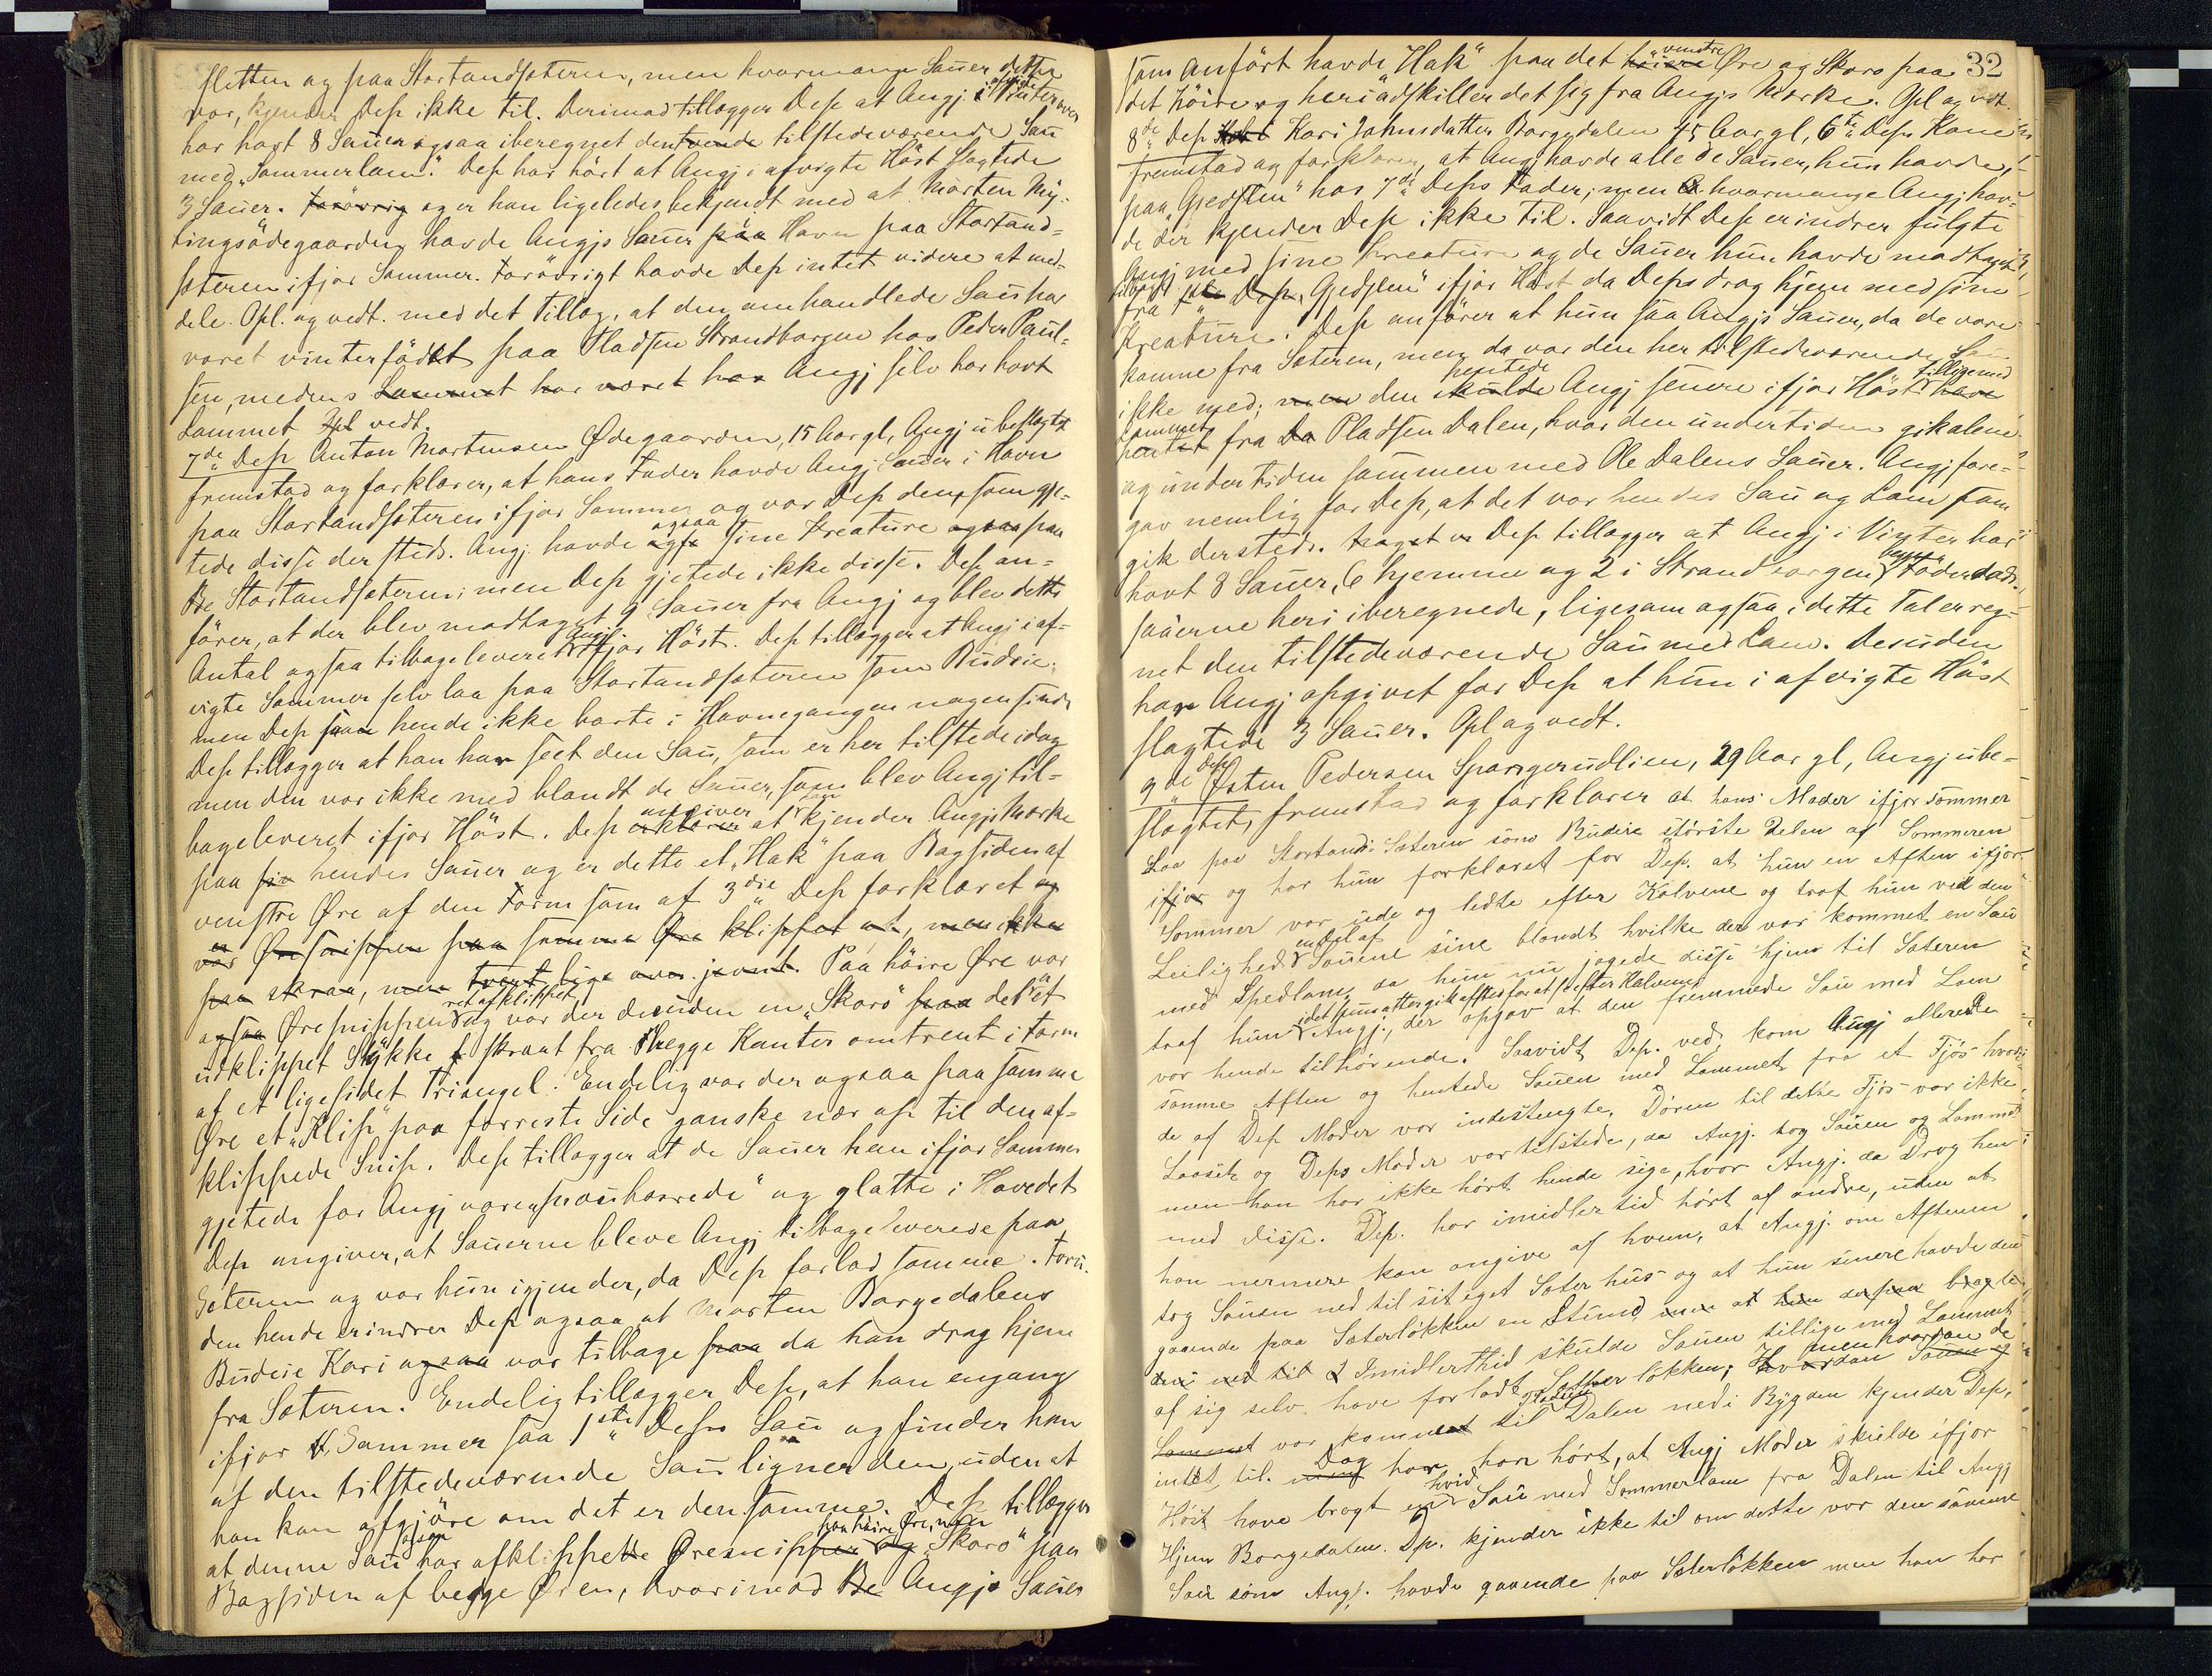 sletten og paa Stortandsæteren, men hvormange Sauer dette
var, kjender Dep ikke til. Derimod tillægger Dep at Angj. i afvigte Vinter over
har havt 8 Sauer ogsaa iberegnet den tvende tilstedeværende Sau
med "Sommerlam". Dep har hørt at Angj i afvigte Høst slagtede
3 Sauer. Forøvrig og er han ligeledes bekjendt med at Morten Myr-
lingsødegaarden havde Angjs Sauer paa Havn paa Stortand-
sæteren ifjor Sommer. Forøvrigt havde Dep intet videre at med-
dele. Opl. og vedt. med det Tillæg, at den omhandlede Sau har
været vinterfødet paa Pladsen Strandborgen hos Peder Paul-
sen, medens Lammet har været hos Angj selv har havt
Lammet Opl vedt.
7de Dep Anton Mortensen Ødegaarden, 15 Aar gl, Angj ubeslægtet
fremstod og forklarer, at hans Fader havde Angj Sauer i Havn
paa Stortandsæteren ifjor Sommer og var Dep den, som gje-
tede disse dersteds. Angj. havde ogsaa sine Kreature ogsaa paa
Be Stortandsæteren; men Dep gjetede ikke disse. Dep an-
fører, at der blev modtaget 9 Sauer fra Angj og blev dette
Antal ogsaa tilbageleveret Angj. ifjor Høst. Dep tillægger at Angj i af-
vigte Sommer selv laa paa Stortandsæteren som Budeie.
men Dep saa hende ikke borte i Havnegangen nogensinde
Dep tillægger at han har seet den Sau, som er her tilstede idag
men den var ikke med blandt de Sauer, som blev Angj til-
bageleveret ifjor Høst. Dep erklærer angiver at han kjender Angjs Mærke
paa sin hendes Sauer og er dette et "Hak" paa Bagsiden af
venstre Øre af den Form som af 3die Dep forklaret og
var Øresnippen paa samme Øre klippet at, men ikke
paa skraa, men tvert lige over jevnt. Paa høire Øre var
ogsaa Øresnippen ret afklippet og var der desuden en "Skoro" paa det et
udklippet Stykke f skraat fra Begge Kanter omtrent i Form
af et ligesidet Triangel. Endelig var der ogsaa paa samme
Øre et "Klip" paa forreste Side ganske nær op til den af-
klippede Snip. Dep tillægger at de Sauer han ifjor Sommer
gjetede for Angj vare "snauhaarede" og glatte i Hovedet
Dep angiver, at Sauerne bleve Angj tilbageleverede paa
Sæteren og var hun igjen der, da Dep forlod samme. Foru-
den hende erindrer Dep ogsaa at Morten Borgedalens
Budeie Kari ogsaa var tilbage paa da han drog hjem
fra Sæteren. Endelig tillægger Dep, at han engang
ifjor Sommer saa 1ste Deps Sau og finder han
af den tilstedeværende Sau ligner den, uden at
han kan afgjøre om det er den samme. Dep tillægger
at denne Sau har afklippede Øresnipper og paa høire Øre, men "Skoro" paa
Bagsiden af begge Ører, hvorimod Be Angjs Sauer
32
som anført havde Hak" paa det høire venstre Øre og Skoro paa
det høire og heri adskiller det sig fra Angjs Mærke. Opl og vdt.
8de Dep Kari Johnsdatter Borgedalen 45 Aar gl, 6te Deps Kone
fremstod og forklarer, at Angj havde alle de Sauer, hun havde,
paa "Gjedsten" hos 7de Deps Fader; men hvormange Angj hav-
de der kjender Dep ikke til. Saavidt Dep erindrer fulgte
Angj med sine Kreature og de Sauer hun havde modtaget
tilbage fra Ole Dep, Gjedsten" ifjor Høst da Deps drog hjem med sine
Kreature. Dep anfører at hun saa Angjs Sauer, da de vare
komne fra Sæteren, men da var den her tilstedeværende Sau
ikke med; men den skulde hentede Angj senere ifjor Høst tilligemed have
Lammet hentet fra Da Pladsen Dalen, hvor den undertiden gik alene
og undertiden sammen med Ole Dalens Sauer. Angj fore-
gav nemlig for Dep, at det var hendes Sau og Lam som
gik dersteds. Noget er Dep tillægger at Angj i Vinter har
havt 8 Sauer, 6 hjemme og 2 i Strandborgen begge Føderaads
sauerne heri iberegnede, ligesom ogsaa i dette Tal er reg-
net den tilstedeværende Sau med Lam. Desuden
har Angj opgivet for Dep at hun i afvigte Høst
slagtede 3 Sauer. Opl og vedt.
9de Dep Østen Pedersen Spangerudlien, 29 Aar gl, Angj ube-
slægtet, fremstod og forklarer at hans Moder ifjor Sommer
laa paa Stortand-Sæteren som Budeie største Delen af Sommeren
ifjor og har hun forklaret for Dep. at hun en Aften ifjor
Sommer var ude og ledte efter Kalvene og traf hun ved den
Leilighed en Del af Sauene sine blandt hvilke der var kommet en Sau
med Spedlam, da hun nu jagede disse hjem til Sæteren
traf hun idet hun atter gik afsted for at se efter Kalvene Angj., der opgav at den fremmede Sau med Lam
var hende tilhørende. Saavidt Dep. ved, kom Angj allerede
samme Aften og hentede Sauen med Lammet fra et Fjøs hvori
de af Dep Moder var indestængte, Døren til dette Fjøs var ikke
Laaset og Deps Moder var tilstede, da Angj. tog Sauen og Lammet
men han har ikke hørt hende sige, hvor Angj. da Drog hen
med disse. Dep. har imidlertid hørt af andre, uden at
han nermere kan angive af hvem, at Angj. om Aftenen
tog Sauen ned til sit eget Sæterhus og at hun senere havde den
gaaende paa Sæterløkken en Stund, men at hun derpaa bragte
den ned til & Imidlertid skulde Sauen tillige med Lammet
af sig selv have forladt Sæterløkken; Hvordan Sauen og men hvordan de
Lammet var kommet til Pladsen Dalen ned i Bygden kjender Dep,
intet til. Dog har han hørt, at Angj Moder skulde ifjor
Høst have bragt en hvid Sau med Sommerlam fra Dalen til Angj
Hjem Borgedalen. Dp. kjender ikke til om dette var den samme
Sau som Angj. havde gaaende paa Sæterløkken men han har